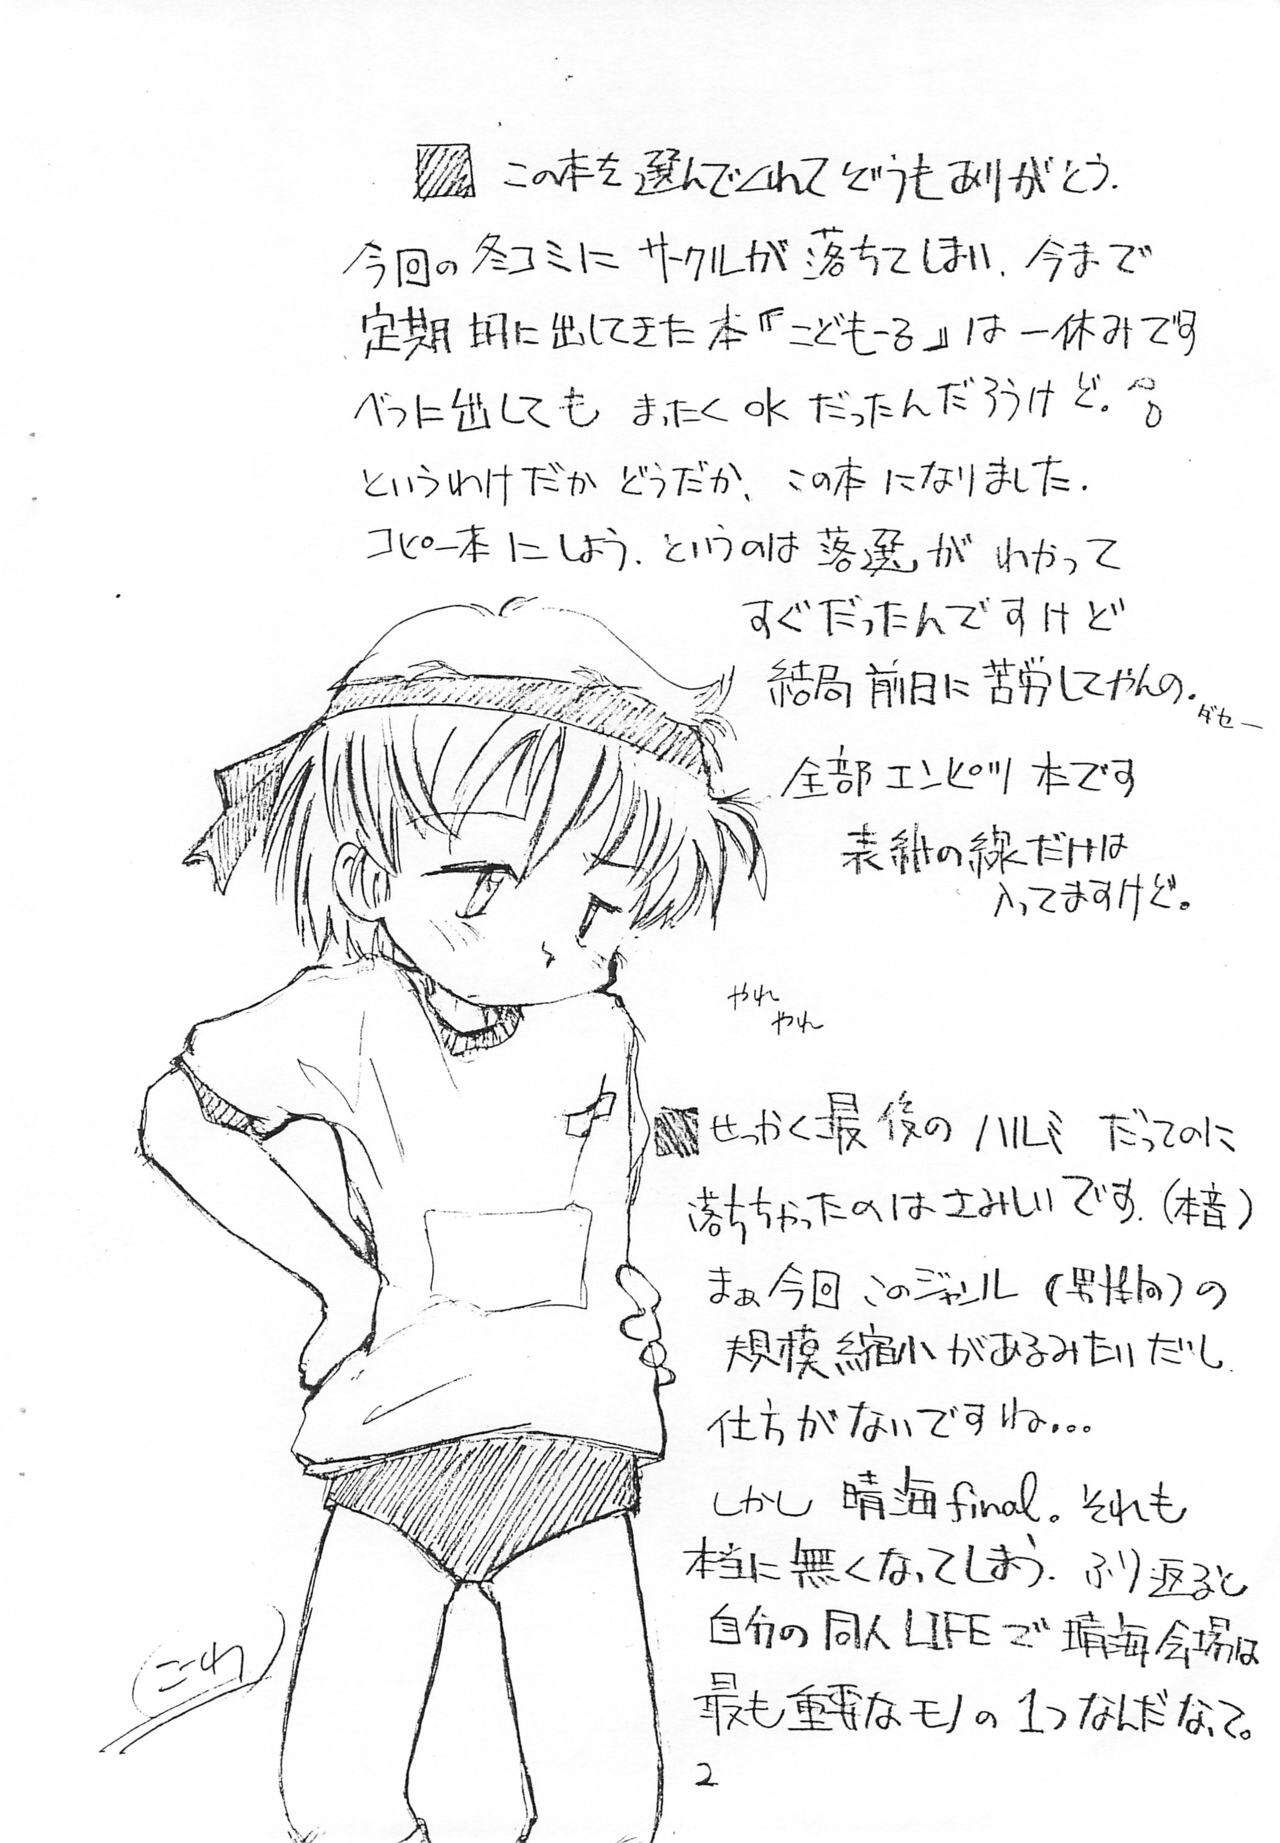 この本を選んでくれてどうもありがとう.
今回の冬コミにサークルが落ちてしまい、今まで
定期的に出してきた本『こどもーる』は一休みです
べつに出してもまったくOKだったんだろうけど。
というわけだかどうだか、この本になりました.
コピー本にしよう、というのは落選がわかって
すぐだったんですけど
結局前日に苦労してやんの.
ダセー
全部エンピツ本です
表紙の線だけは
入ってますけど。
やれ
やれ
せっかく最後のハルミだってのに
落ちちゃったのはさみしいです.(本音)
まぁ今回このジャンル(男性向)の
規模縮小があるみたいだし
仕方がないですね...
しかし晴海final。それも
本当に無くなってしまう. ふり返ると
自分の同人LIFEで晴海会場は
最も重要なモノの1つなんだなって。
2